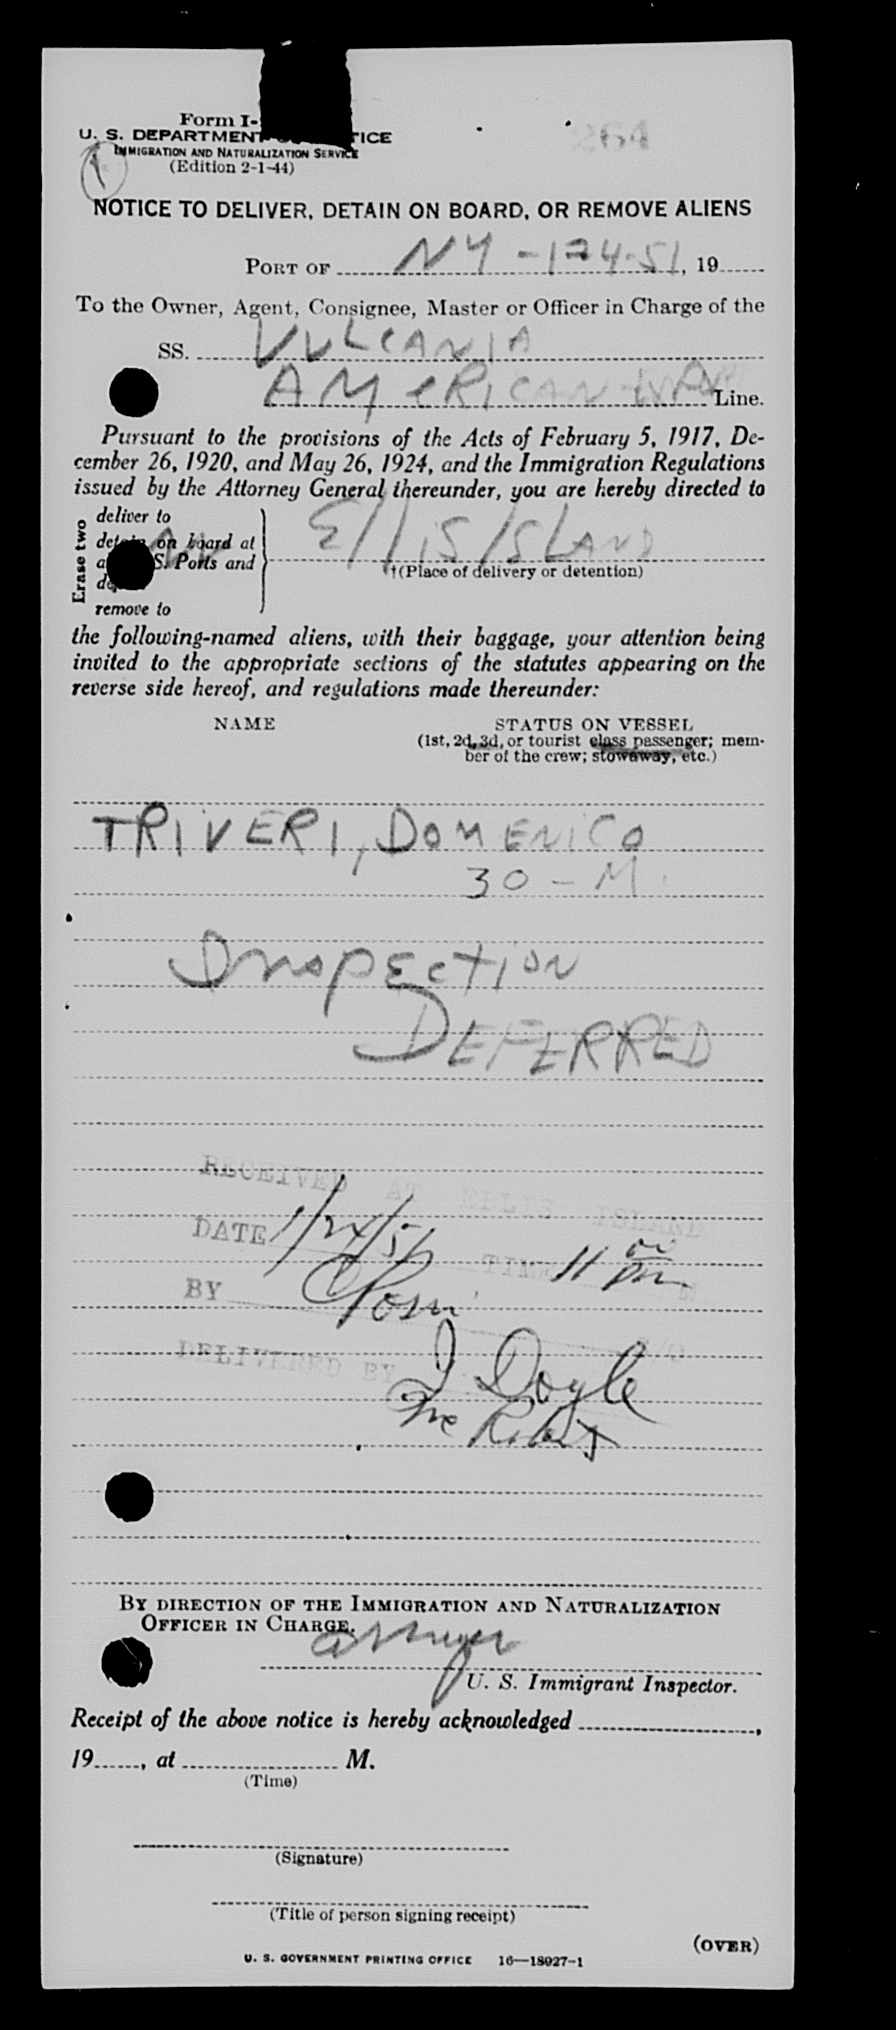 264
Form I-
U. S. DEPARTMENT TICE
IMMIGRATION AND NATURALIZATION SERVICE
(Edition 2-1-44)
NOTICE TO DELIVER, DETAIN ON BOARD, OR REMOVE ALIENS
PORT OF NY -1-24-51, 19
To the Owner, Agent, Consignee, Master or Officer in Charge of the
SS. VULCANIA
AMERICAN Line.
Pursuant to the provisions of the Acts of February 5, 1917, De-
cember 26, 1920, and May 26, 1924, and the Immigration Regulations
issued by the Attorney General thereunder, you are hereby directed to
Erase two
deliver to
detain on board at
S. Ports and
remove to
Ellis Island
†(Place of delivery or detention)
the following-named aliens, with their baggage, your attention being
invited to the appropriate sections of the statutes appearing on the
reverse side hereof, and regulations made thereunder:
NAME STATUS ON VESSEL
(1st, 2d, 3d, or tourist class passenger; mem-
ber of the crew; stowaway, etc.)
TRIVERI, DOMENICO
30 - M
Inspection
DEFERRED
RECEIVED AT ELLIS ISLAND
DATE 1/24/51 TIME 11 00 pm
BY
DELIVERED BY J Doyle
BY DIRECTION OF THE IMMIGRATION AND NATURALIZATION
OFFICER IN CHARGE.
U. S. Immigrant Inspector.
Receipt of the above notice is hereby acknowledged
19 , at M.
(Time)
(Signature)
(Title of person signing receipt)
(OVER)
U. S. GOVERNMENT PRINTING OFFICE 16—18027-1